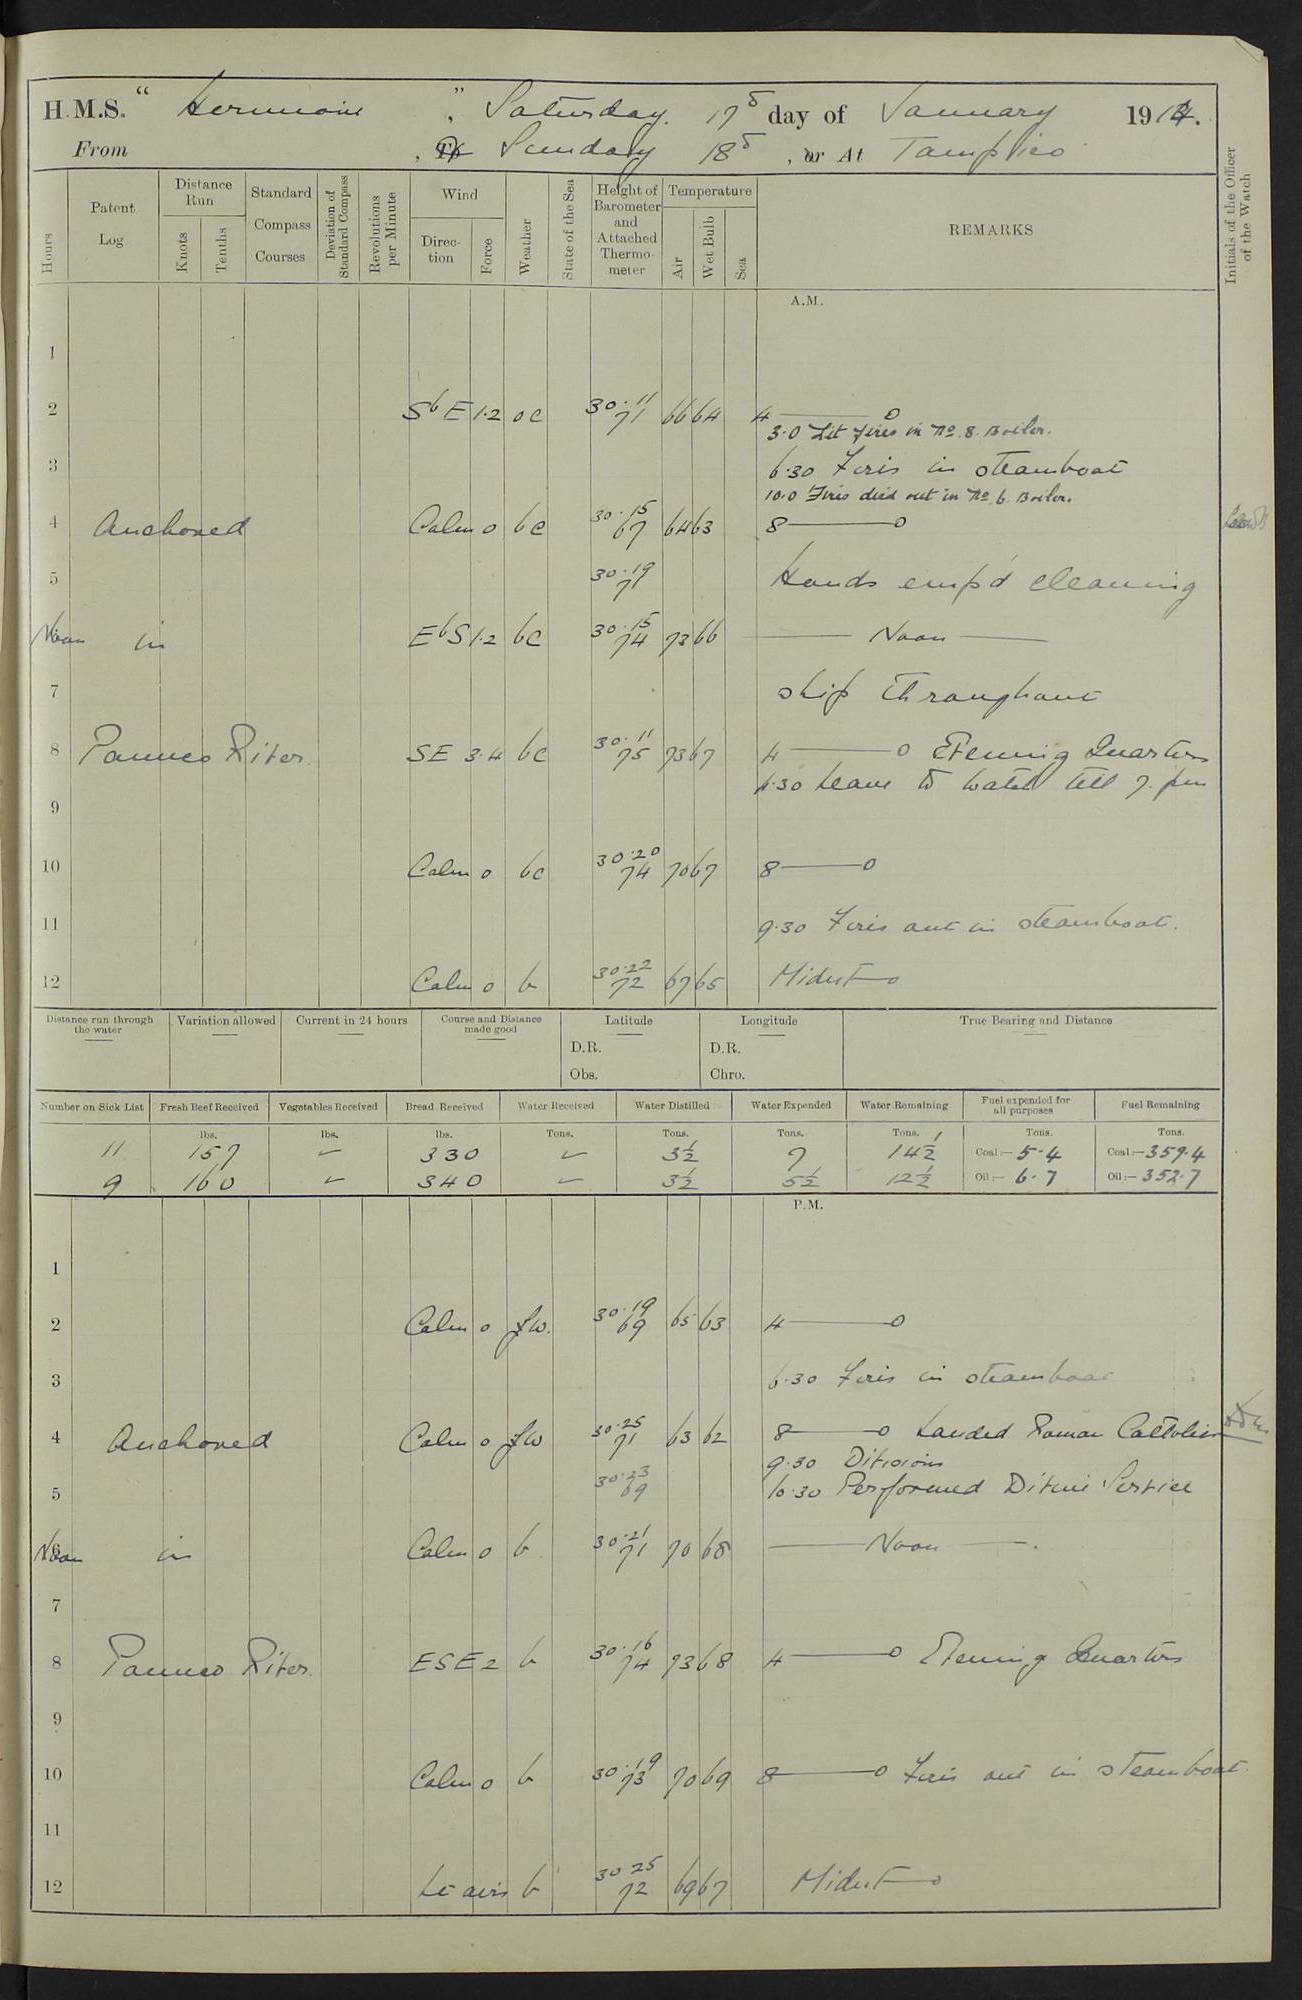 H.M.S. “ Hermione ”, Saturday. 17th day of January 1914.
From , To Sunday 18th , or At Tampico
Hours
Patent Log
Distance Run
Knots
Tenths
Standard Compass Courses
Deviation of Standard Compass
Revolutions per Minute
Wind
Direc-tion
Force
Weather
State of the Sea
Height of Barometer and Attached Thermo-meter
Temperature
Air
Wet Bulb
Sea
REMARKS
Initials of the Officer of the Watch
A.M.
1
2 SbE 1.2 oc 30.11 71 66 64 4 ——— 0
3.0 Lit fires in No. 8. Boiler.
3 6.30 Fires in steamboat
10.0 Fires died out in No. 6. Boiler.
4 Anchored Calm 0 bc 30.15 67 64 63 8 ——— 0
5 30.19 71 Hands emp'd cleaning
Noon in EbS 1.2 bc 30.15 74 73 66 —— Noon ——
7 ship throughout
8 Panuco River. SE 3.4 bc 30.11 75 73 67 4 ——— 0 Evening Quarters
6.30 Leave to watch till 7. pm
9
10 Calm 0 bc 30.20 74 70 67 8 ——— 0
11 9.30 Fires out in steamboat.
12 Calm 0 b 30.22 72 67 65 Midnt — 0
Distance run through the water
Variation allowed
Current in 24 hours
Course and Distance made good
Latitude
Longitude
True Bearing and Distance
D.R. D.R.
Obs. Chro.
Number on Sick List
Fresh Beef Received
Vegetables Received
Bread Received
Water Received
Water Distilled
Water Expended
Water Remaining
Fuel expended for all purposes
Fuel Remaining
lbs. lbs. lbs. Tons. Tons. Tons. Tons. Tons. Tons.
11 157 ✓ 330 ✓ 3½ 7 14½ Coal:— 5.4 Coal:— 359.4
9 160 ✓ 340 ✓ 3½ 5½ 12½ Oil:— 6.7 Oil:— 352.7
P.M.
1
2 Calm 0 fw. 30.19 69 65 63 4 ——— 0
3 6.30 Fires in steamboat
4 Anchored Calm 0 fw 30.25 71 63 62 8 ——— 0 Landed Roman Catholics
9.30 Divisions
5 30.23 69 10.30 Performed Divine Service
Noon in Calm 0 b 30.21 71 70 68 —— Noon ——.
7
8 Panuco River. ESE 2 b 30.16 74 73 68 4 ——— 0 Evening Quarters
9
10 Calm 0 b 30.19 73 70 69 8 ——— 0 Fires out in steamboat.
11
12 Lt airs b 30.25 72 69 67 Midnt — 0